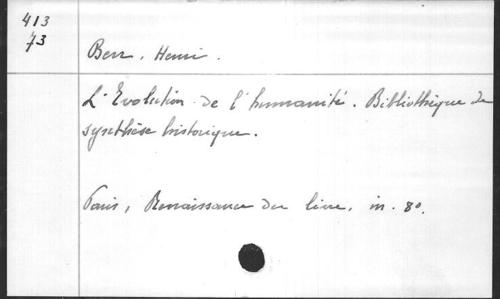 413
73
Berr, Henri.
L'Évolution de l'humanité. Bibliothèque de
synthèse historique.
Paris, Renaissance du livre, in-8o.